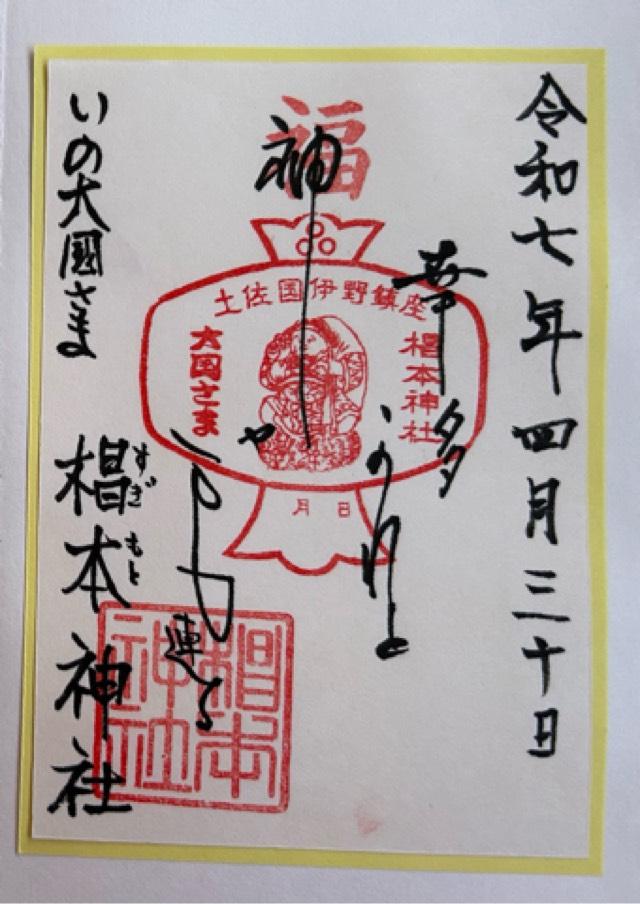 令和七年四月三十日
福
土佐国伊野鎮座
椙本神社
大国さま
月 日
幸多
神
連る
いの大國さま
椙本神社
すぎもと
椙本神社